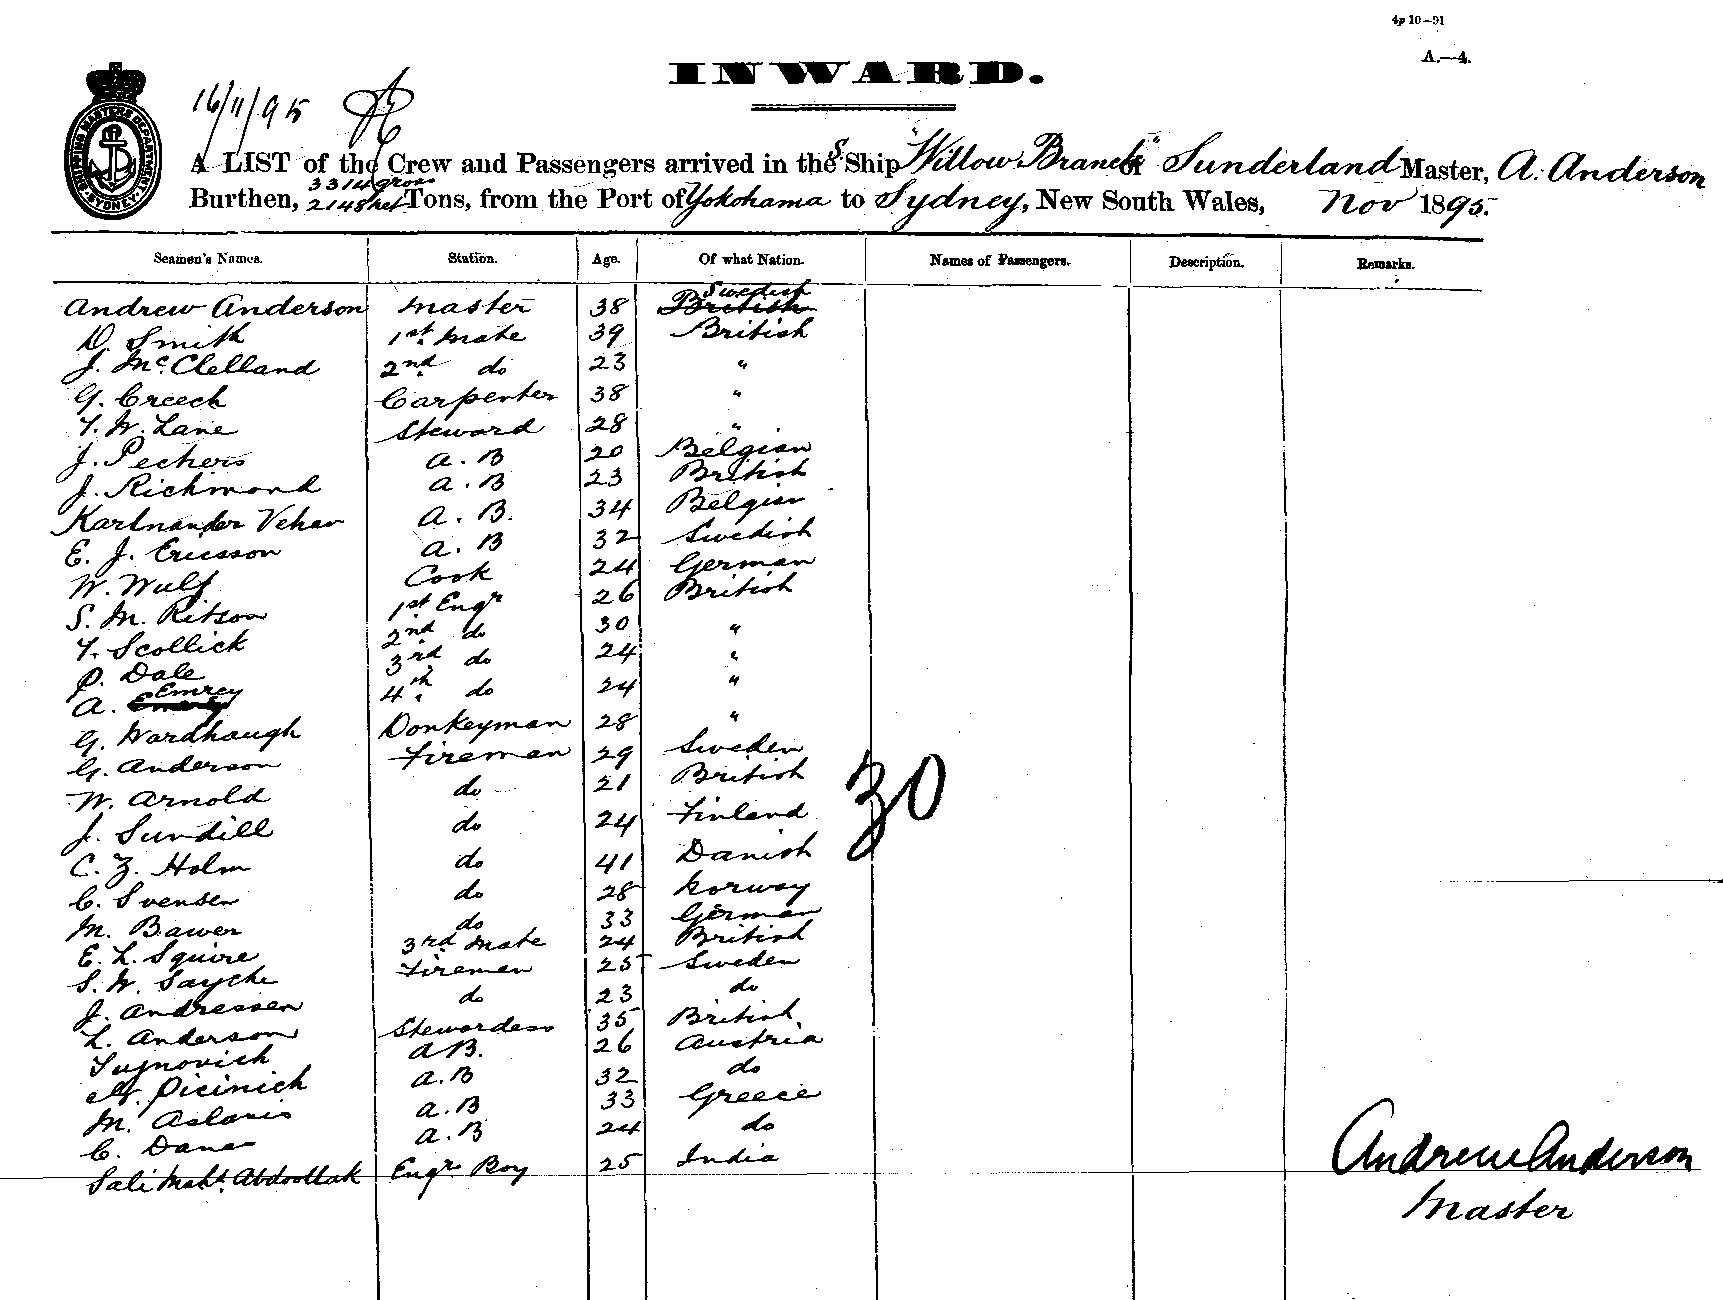 4p 10–91
A.—4.
INWARD.
16/11/95
SHIPPING MASTERS DEPARTMENT SYDNEY
A LIST of the Crew and Passengers arrived in the S Ship "Willow Branch" of Sunderland Master, A. Anderson
Burthen, 3314 gross 2148 net Tons, from the Port of Yokohama to Sydney, New South Wales, Nov 1895.
Seamen's Names. Station. Age. Of what Nation. Names of Passengers. Description. Remarks.
Andrew Anderson Master 38 British Swedish
D. Smith 1st Mate 39 British
J. McClelland 2nd do 23 "
G. Creech Carpenter 38 "
T. W. Lane Steward 28 "
J. Peckers A. B 20 Belgian
J. Richmond A. B 23 British
Karlnander Vehav A. B. 34 Belgian
E. J. Ericsson A. B 32 Swedish
W. Wulf Cook 24 German
S. M. Ritson 1st Engr 26 British
T. Scollick 2nd do 30 "
P. Dale 3rd do 24 "
A. Emrey 4th do 24 "
G. Wardhaugh Donkeyman 28 "
G. Anderson Fireman 29 Sweden
W. Arnold do 21 British
J. Sundill do 24 Finland
30
C. Z. Holm do 41 Danish
C. Svensen do 28 Norway
M. Bawer do 33 German
E. L. Squire 3rd Mate 24 British
S. W. Sayche Fireman 25 Sweden
J. Andressen do 23 do
L. Anderson Stewardess 35 British
Tujnovich A B. 26 Austria
Picinich A. B 32 do
M. Aslanis A. B 33 Greece
C. Danes A. B 24 do
Sali Maht. Abdoollak Engrs Boy 25 India
Andrew Anderson
Master